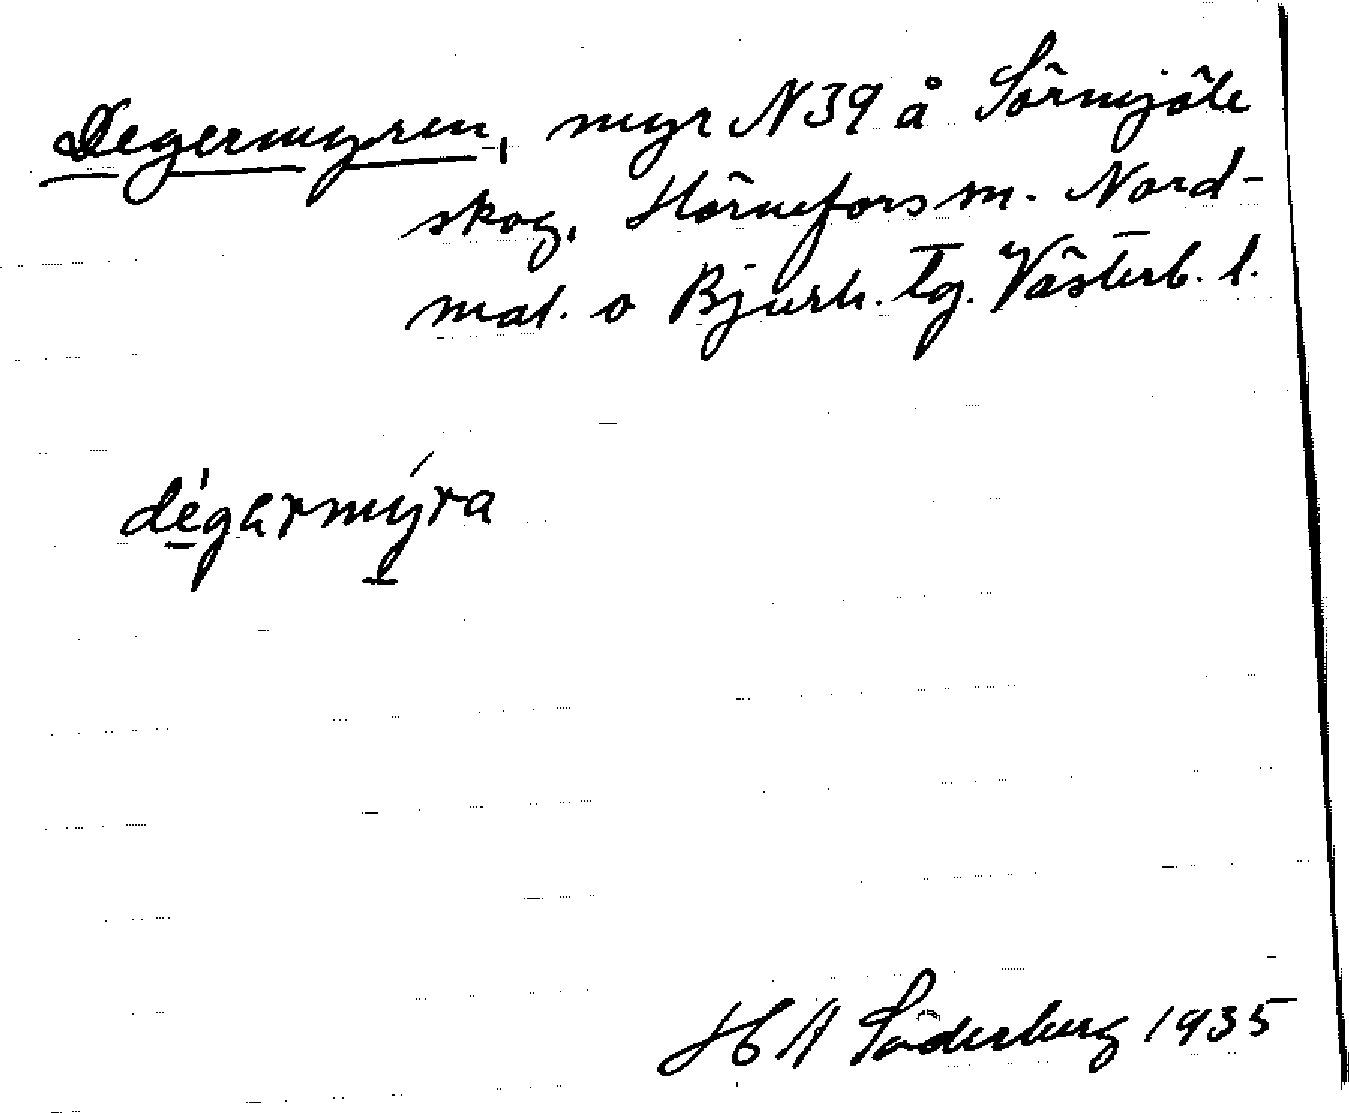 Degermyren, myr N39 å Sörmjöle
skog, Hörnefors sn. Nord-
mal. o Bjurh. tg. Västerb. l.
dégarmýra
H A Söderberg 1935